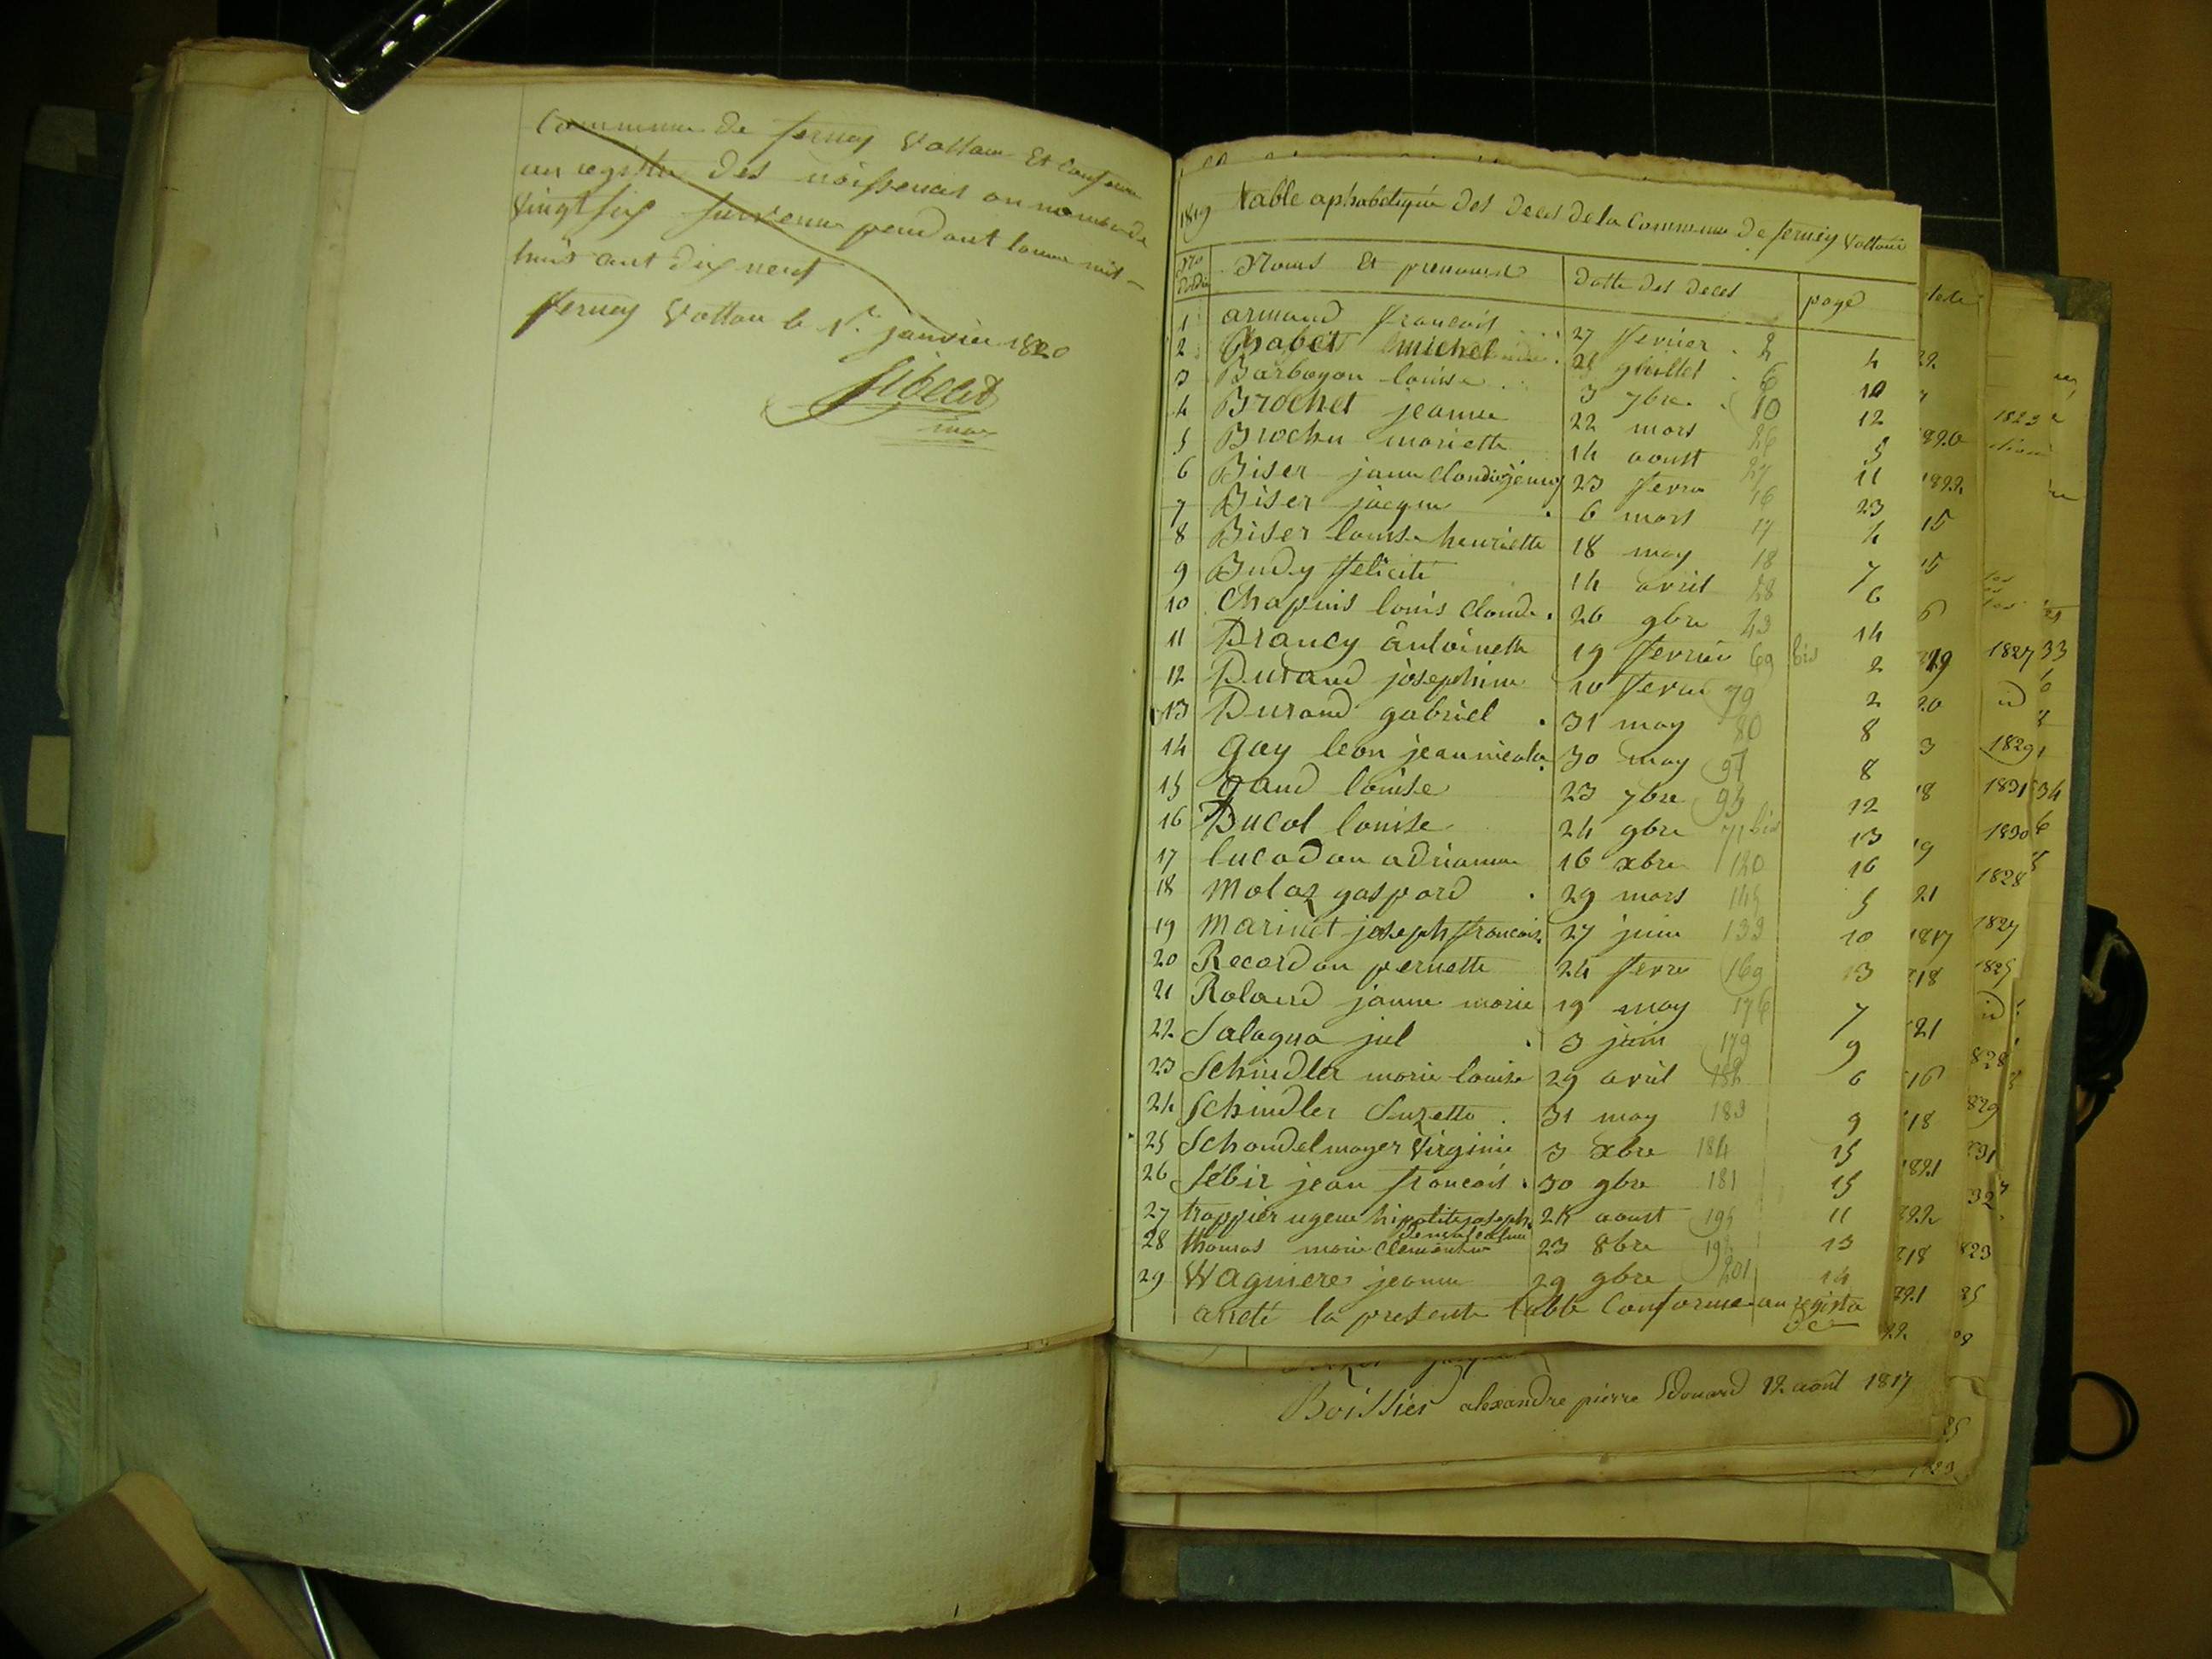 Commune de fernex Voltaire Et Conforme
au registre des naissences au nombre de
Vingt six survenu pendant lanné mil
huit cent dix neuf
fernex Voltaire le 1r. janvier 1820
1819 table alphabetique des deces de la Commune de ferney Voltaire
No Noms Et prenoms datte des deces page
1 armand francois 27 fevrier 2 4
2 michel 6 10
3 Barboyon louise 3 7bre 10 12
4 Brochet jeanne 22 mars 26 5
5 Brochu mariette 14 aoust 27 11
6 Biser janne 23 fevrr 16 23
7 Biser jacque 6 mars 17 4
8 Biser louise henriette 18 may 18 7
9 Budy felicité 14 avril 28 6
10 Chapuis louis Claude 26 9bre 43 14
11 Drancy antoinette 19 fevrier 69 bis 2
12 Durand josephine 10 fevrr 79 2
13 Durand gabriel 31 may 80 8
14 gay leon jean nicola 30 may 97 8
15 gand louise 23 7bre 95 12
16 Ducol louise 24 9bre 71 bis 13
17 lucadou adrianne 16 xbre 120 16
18 Molaz gaspard 29 mars 145 5
19 Marinet joseph francois 27 juin 133 10
20 Recordon pernette 24 fevrr 169 3
21 Roland janne marie 19 may 176 7
22 Salagna jul 3 juin 179 9
23 Schindler marie louise 29 avril 182 6
24 Schindler Suzette 31 may 183 9
25 Schoudelmayer Virginie 3 xbre 184 15
26 Sébir jean francois 30 9bre 181 15
27 trappier ugene hipolite joseph 28 aoust 195 11
28 thomas marie Clementine 23 8bre 13
29 Wagnieres jeanne 29 9bre 201 14
areté la presente table Conforme au registre
Boissier alexandre pierre Edouard 12 août 1817